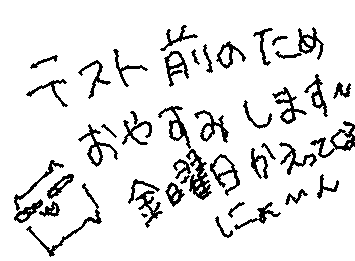 テスト前のため
おやすみします~
金曜日かえってくる
にゃ~ん